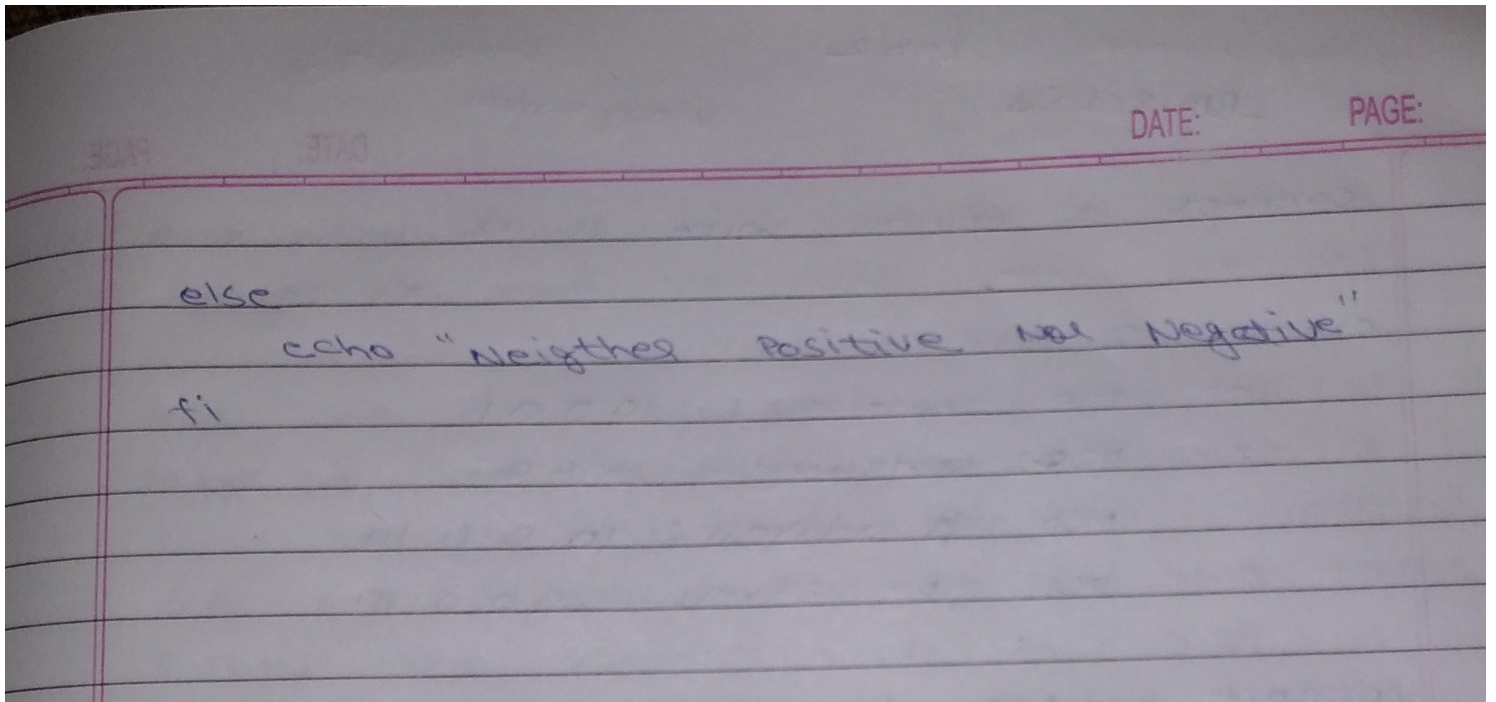 DATE: PAGE:
else
echo "Neigther Positive Nor Negative"
fi